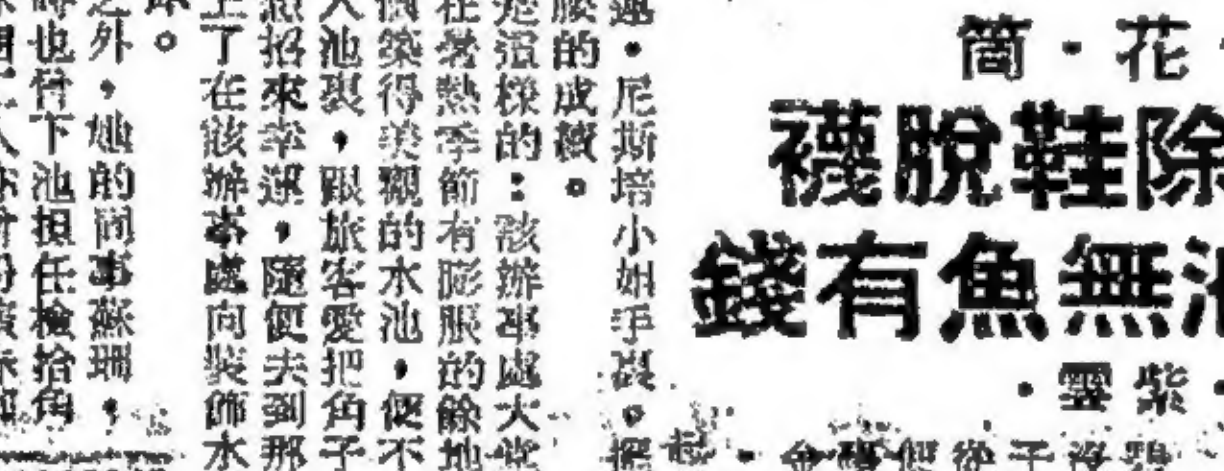 花·筒
除鞋脫襪
池無魚有錢
·紫雲·
·尼斯培小姐手裏。
的成績。
是這樣的：該辦事處大堂
在暑熱季節有膨脹的餘地
築得美觀的水池，便不
池裏，跟旅客愛把角子
招來幸運，隨便去到那
上了在該辦事處向裝飾水
。
之外，她的同事蘇珊，
也曾下池担任檢拾角